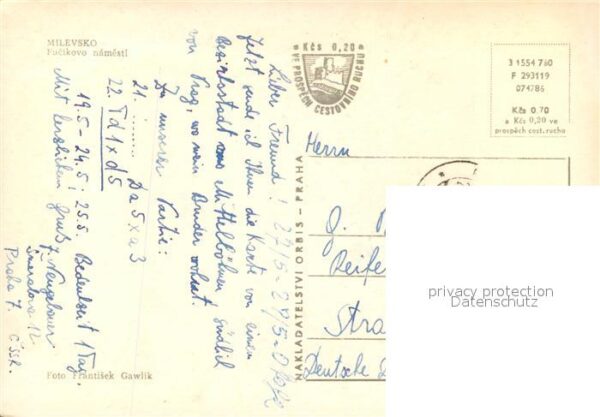 MILEVSKO
Fučíkovo náměstí
Lieber Freund! 27/5-24/5-0
Jetzt sende ich Ihnen die Karte von einem
Bezirksstadt aus Mittelböhmen südlich
von Prag, wo mein Bruder wohnt.
Zu unserer Partie:
21. ........ Da5xa3
22. Td1xd5
19.5-24.5! 25.5. Bedeutet 1 Tag.
Mit herzlichem Gruß
J. Neugebauer
12
Praha 7. ČSSR.
Foto František Gawlik
NAKLADATELSTVÍ ORBIS - PRAHA
Kčs 0,20
VE PROSPĚCH CESTOVNÍHO RUCHU
3 1554 760
F 293119
074786
Kčs 0,70
a Kčs 0,20 ve
prospěch cest. ruchu
Herrn
G.
Reife
Stra
Deutsche D
privacy protection
Datenschutz